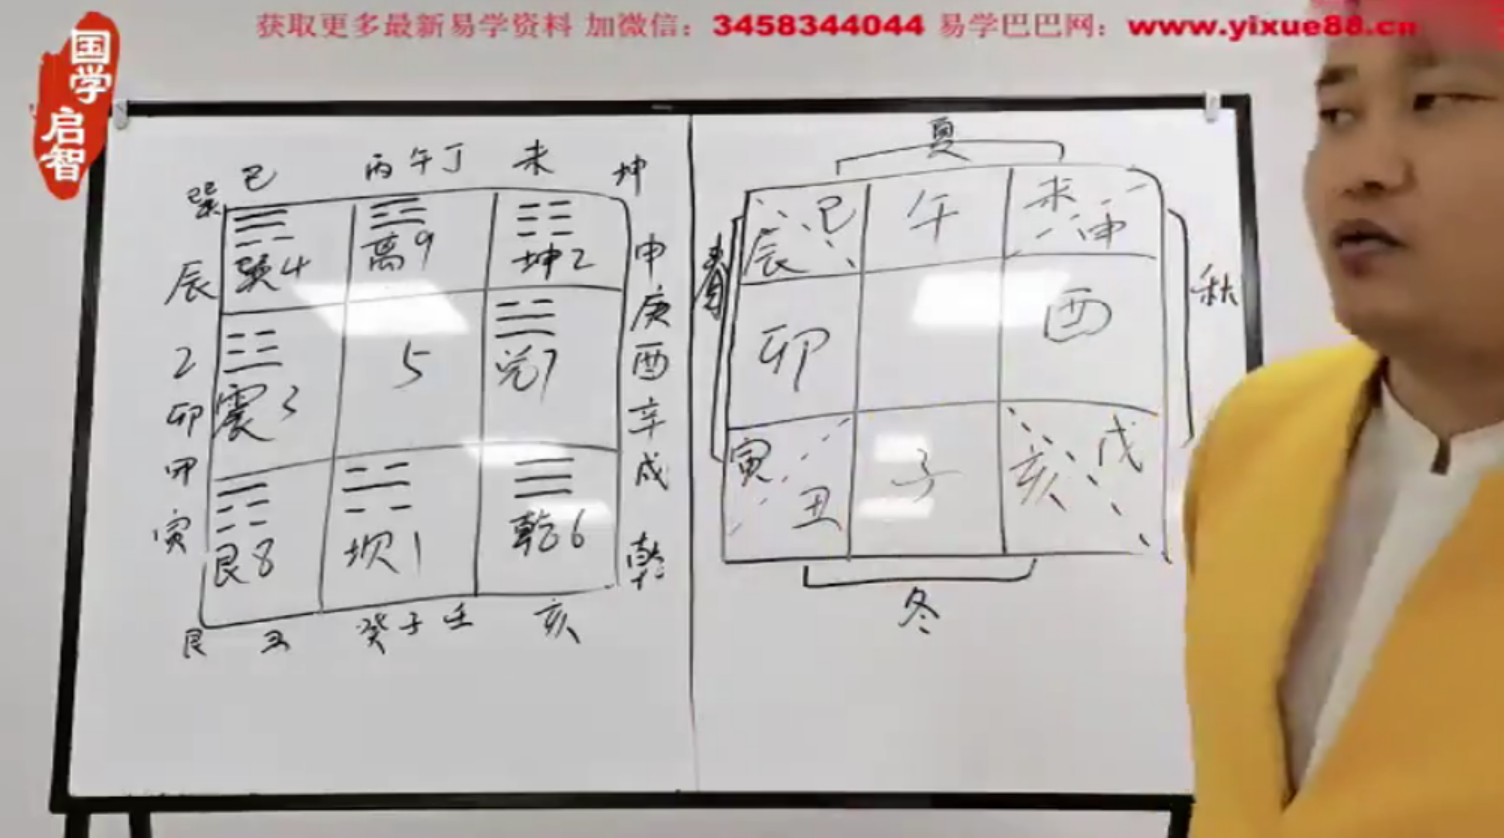 获取更多最新易学资料 加微信：3458344044 易学巴巴网：www.yixue88.cn
国学
启智
巽 巳 丙 午 丁 未 坤
辰 巽4 离9 坤2 申
庚
乙 震3 5 兑7 酉
卯 辛
甲 戌
寅 艮8 坎1 乾6 乾
艮 丑 癸 子 壬 亥
夏
辰 巳 午 未 申
春 卯 酉 秋
寅 丑 子 亥 戌
冬